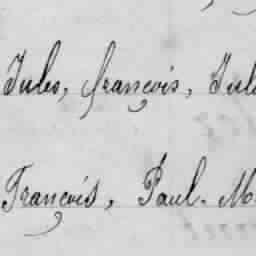 Jules, françois, Jul
François, Paul. M